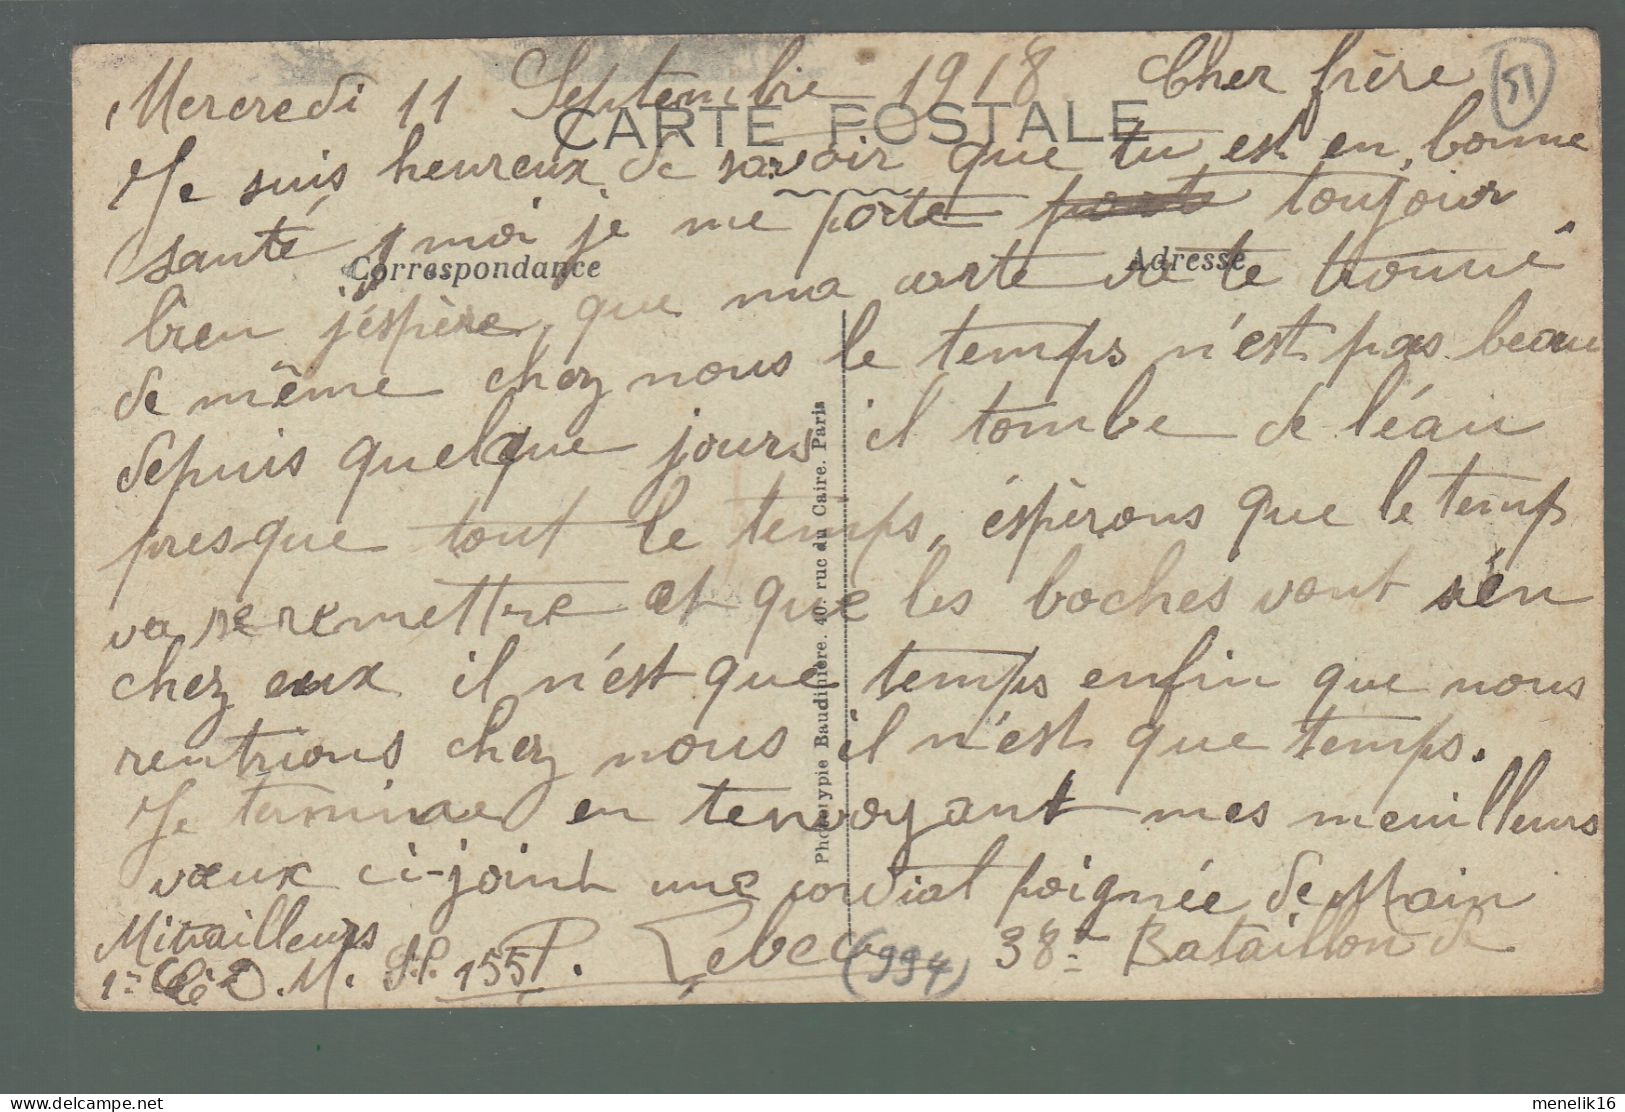 Mercredi 11 Septembre 1918 Cher frère
51
CARTE POSTALE
Je suis heureux de savoir que tu est en bonne
santé, moi je me porte toujour
Correspondance
Adresse
bien j'éspère, que ma carte va te trouvé
de même chez nous le temps n'est pas beau
depuis quelque jours il tombe de l'éau
presque tout le temps, éspèrons que le temps
va se remettre et que les boches vont s'én
chez eux il n'est que temps enfin que nous
rentrions chez nous il n'est que temps.
Je termine en tenvoyant mes meuilleurs
vœux ci-joint une cordial poignée de Main
Lebec 38e Bataillon de
Mitrailleurs
1re Cie D.M. S.P. 155
(994)
Phototypie Baudinière. 40. rue du Caire. Paris
delcampe.net
menelik16